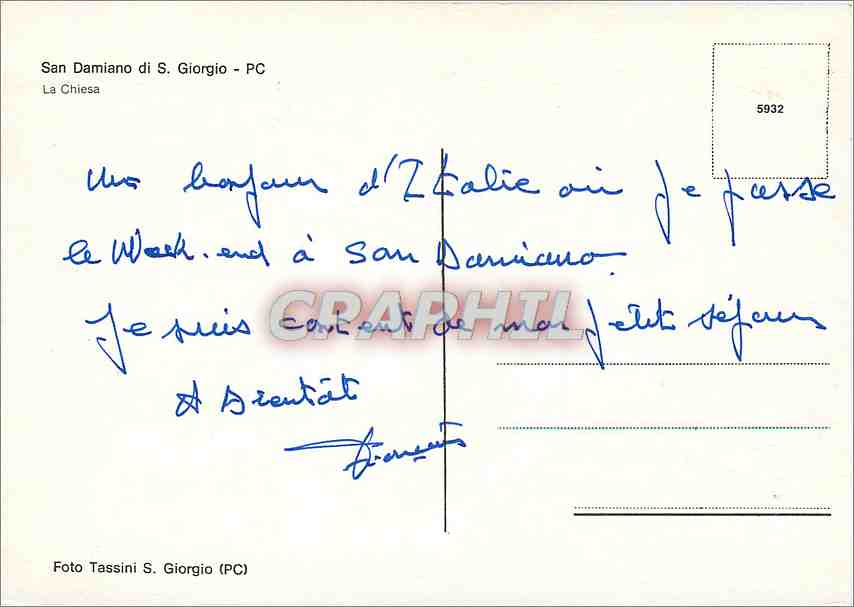 San Damiano di S. Giorgio - PC
La Chiesa
5932
Un bonjour d'Italie où je passe
le Week-end à San Damiano.
Je suis content de mon petit séjour
A Bientôt
François
CPAPHIL
Foto Tassini S. Giorgio (PC)